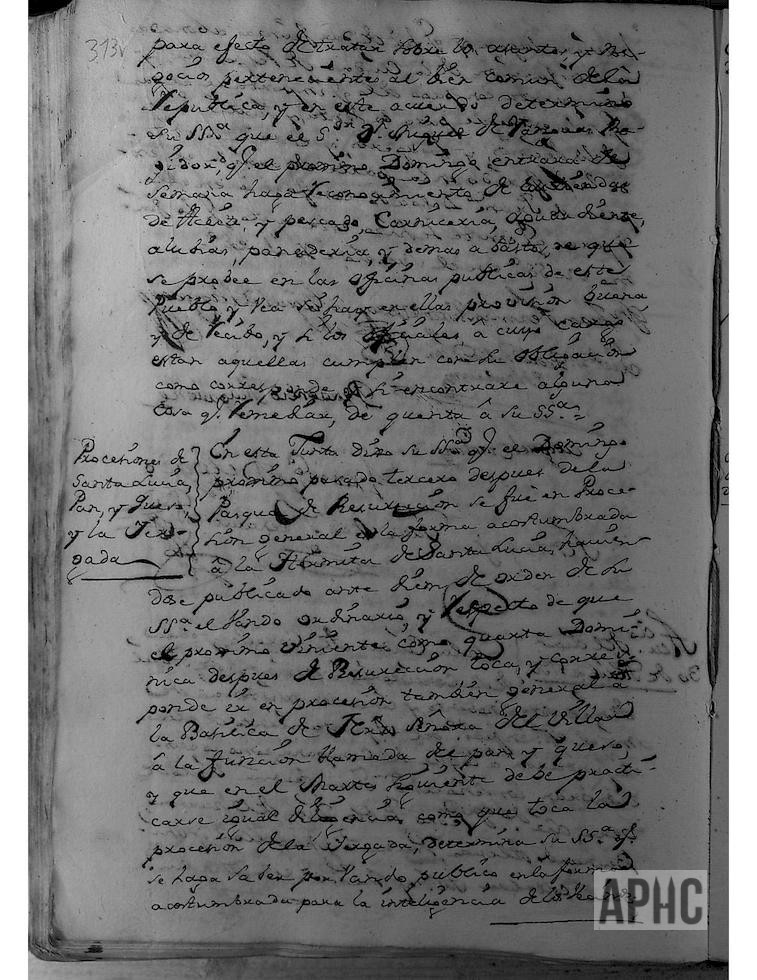 313v
para efecto de tratar sobre los asuntos, y ne-
gocios pertenecientes al bien comun de la
Republica, y en este acuerdo determinó
su SSª. que el Sʳ. Dⁿ. Miguel de
gidor, q̃. el proximo Domingo entrará de
semana haga reconocimiento de las tiendas
de Aceite, y pescado, Carniceria, Aguardiente,
alubias, panaderia, y demas abasto, de que
se probee en las oficinas publicas de este
Pueblo, y vea si hay en ellas provision buena,
y de recibo, y si los oficiales, á cuyo cargo
estan aquellas cumplen con su obligacion
como corresponde, y si encontrare alguna
cosa q̃. remediar, de quenta â su SSª.=
Procesiones de
Santa Lucia,
Pan, y queso,
y la Ver-
gada
En esta Junta dixo su SSª. q̃. el Domingo
proximo pasado tercero despues de la
Pasqua de Resurreccion se fue en Proce-
sion general en la forma acostumbrada
â la Hermita de Santa Lucia, havien-
dose publicado ante diem de orden de su
SSª. el Vando ordinario, y respecto de que
el proximo viniente como quarta Domi-
nica despues de Resurreccion toca, y corres-
ponde ir en procesion tambien general â
la Basilica de Ntrâ. Señora del Villar
â la funcion llamada de pan, y queso,
y que en el Martes siguiente debe practi-
carse igual diligencia, como que toca la
procesion de la Vergada, determina su SSª. q̃.
se haga saber por Vando publico en la forma
acostumbrada para la inteligencia de los
APHC